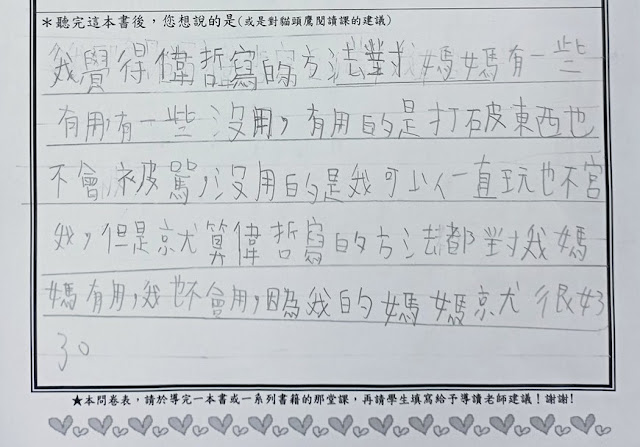 ＊聽完這本書後，您想說的是(或是對貓頭鷹閱讀課的建議)
我覺得偉哲寫的方法對我媽媽有一些
有用，有一些沒用，有用的是打破東西也
不會被罵，沒用的是我可以一直玩也不管
我，但是就算偉哲寫的方法都對我媽
媽有用，我也不會用，因為我的媽媽就很好
了。
★本問卷表，請於導完一本書或一系列書籍的那堂課，再請學生填寫給予導讀老師建議！謝謝!